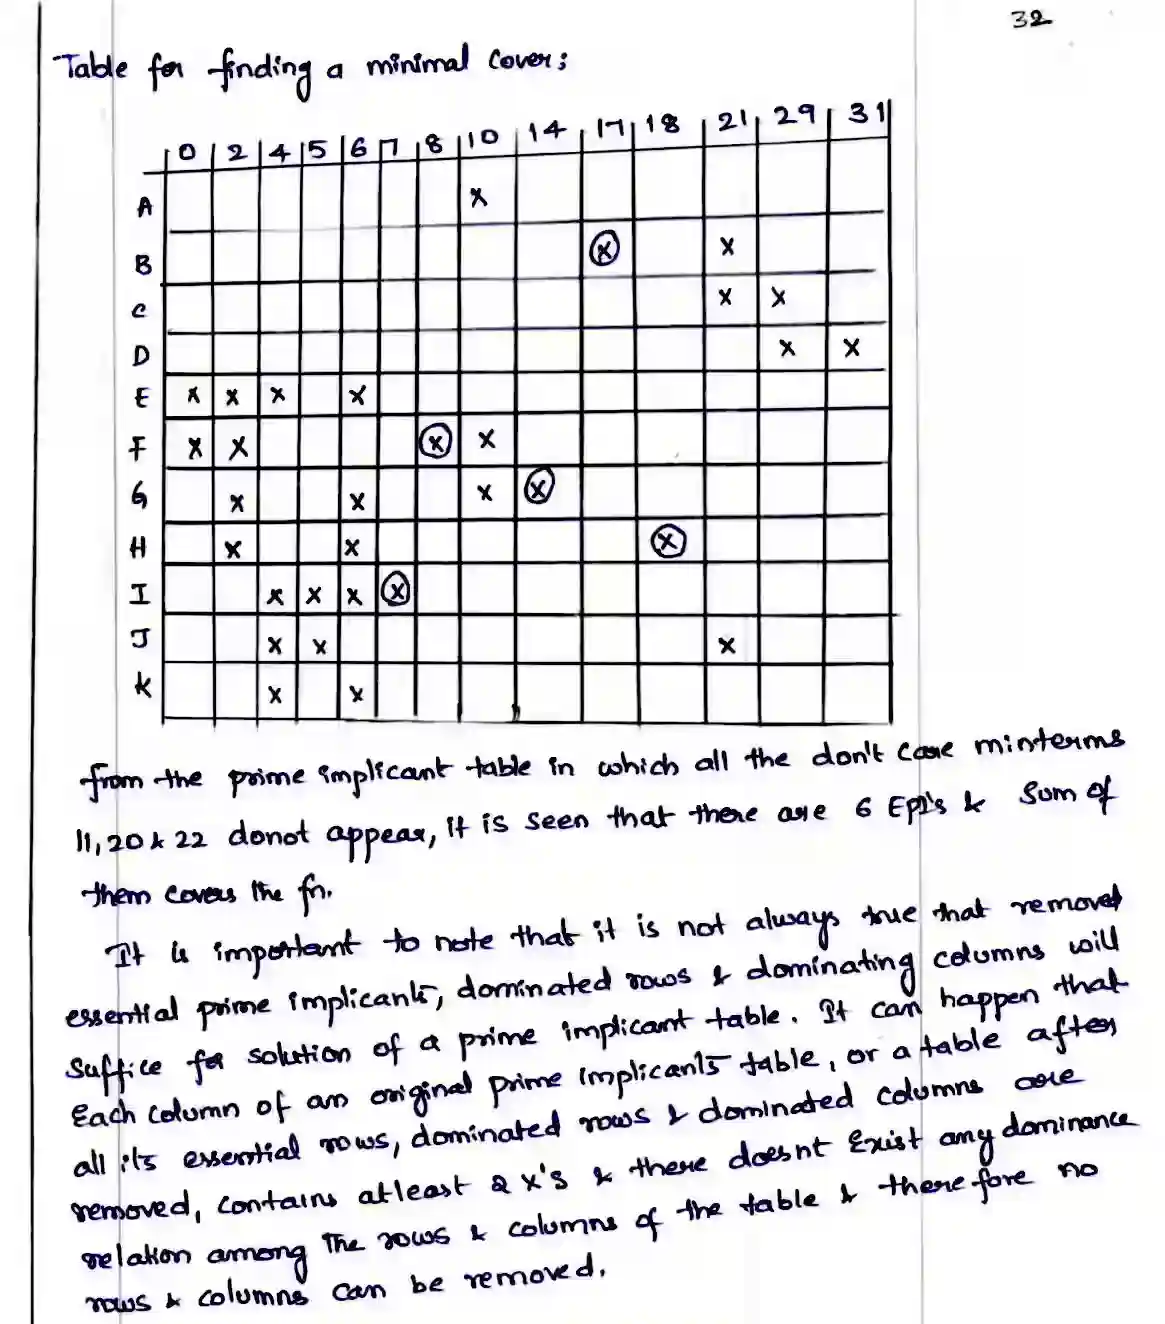 32
Table for finding a minimal cover;
0 2 4 5 6 7 8 10 14 17 18 21 29 31
A x
B x x
C x x
D x x
E x x x x
F x x x x
G x x x x
H x x x
I x x x x
J x x x
K x x
from the prime implicant table in which all the don't care minterms
11, 20 & 22 donot appear, it is seen that there are 6 EPI's & Sum of
them covers the fn.
It is important to note that it is not always true that removed
essential prime implicants, dominated rows & dominating columns will
suffice for solution of a prime implicant table. It can happen that
Each column of an original prime implicants table, or a table after
all its essential rows, dominated rows & dominated columns are
removed, contains atleast 2 x's & there doesnt Exist any dominance
relation among the rows & columns of the table & therefore no
rows & columns can be removed.